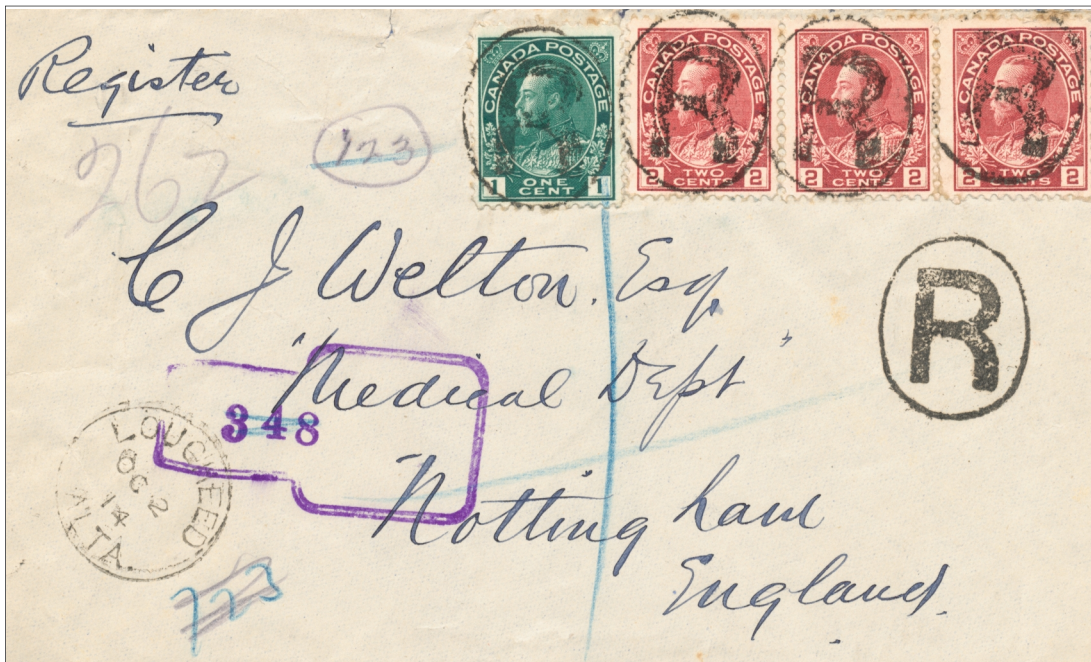 Register
262
123
CANADA POSTAGE
1 ONE CENT 1
CANADA POSTAGE
2 TWO CENTS 2
CANADA POSTAGE
2 TWO CENTS 2
CANADA POSTAGE
2 TWO CENTS 2
R
R
R
R
C J Welton. Esq.
"Medical Dept"
Nottingham
England.
R
348
LOUGHEED
OC 2
14
ALTA.
723